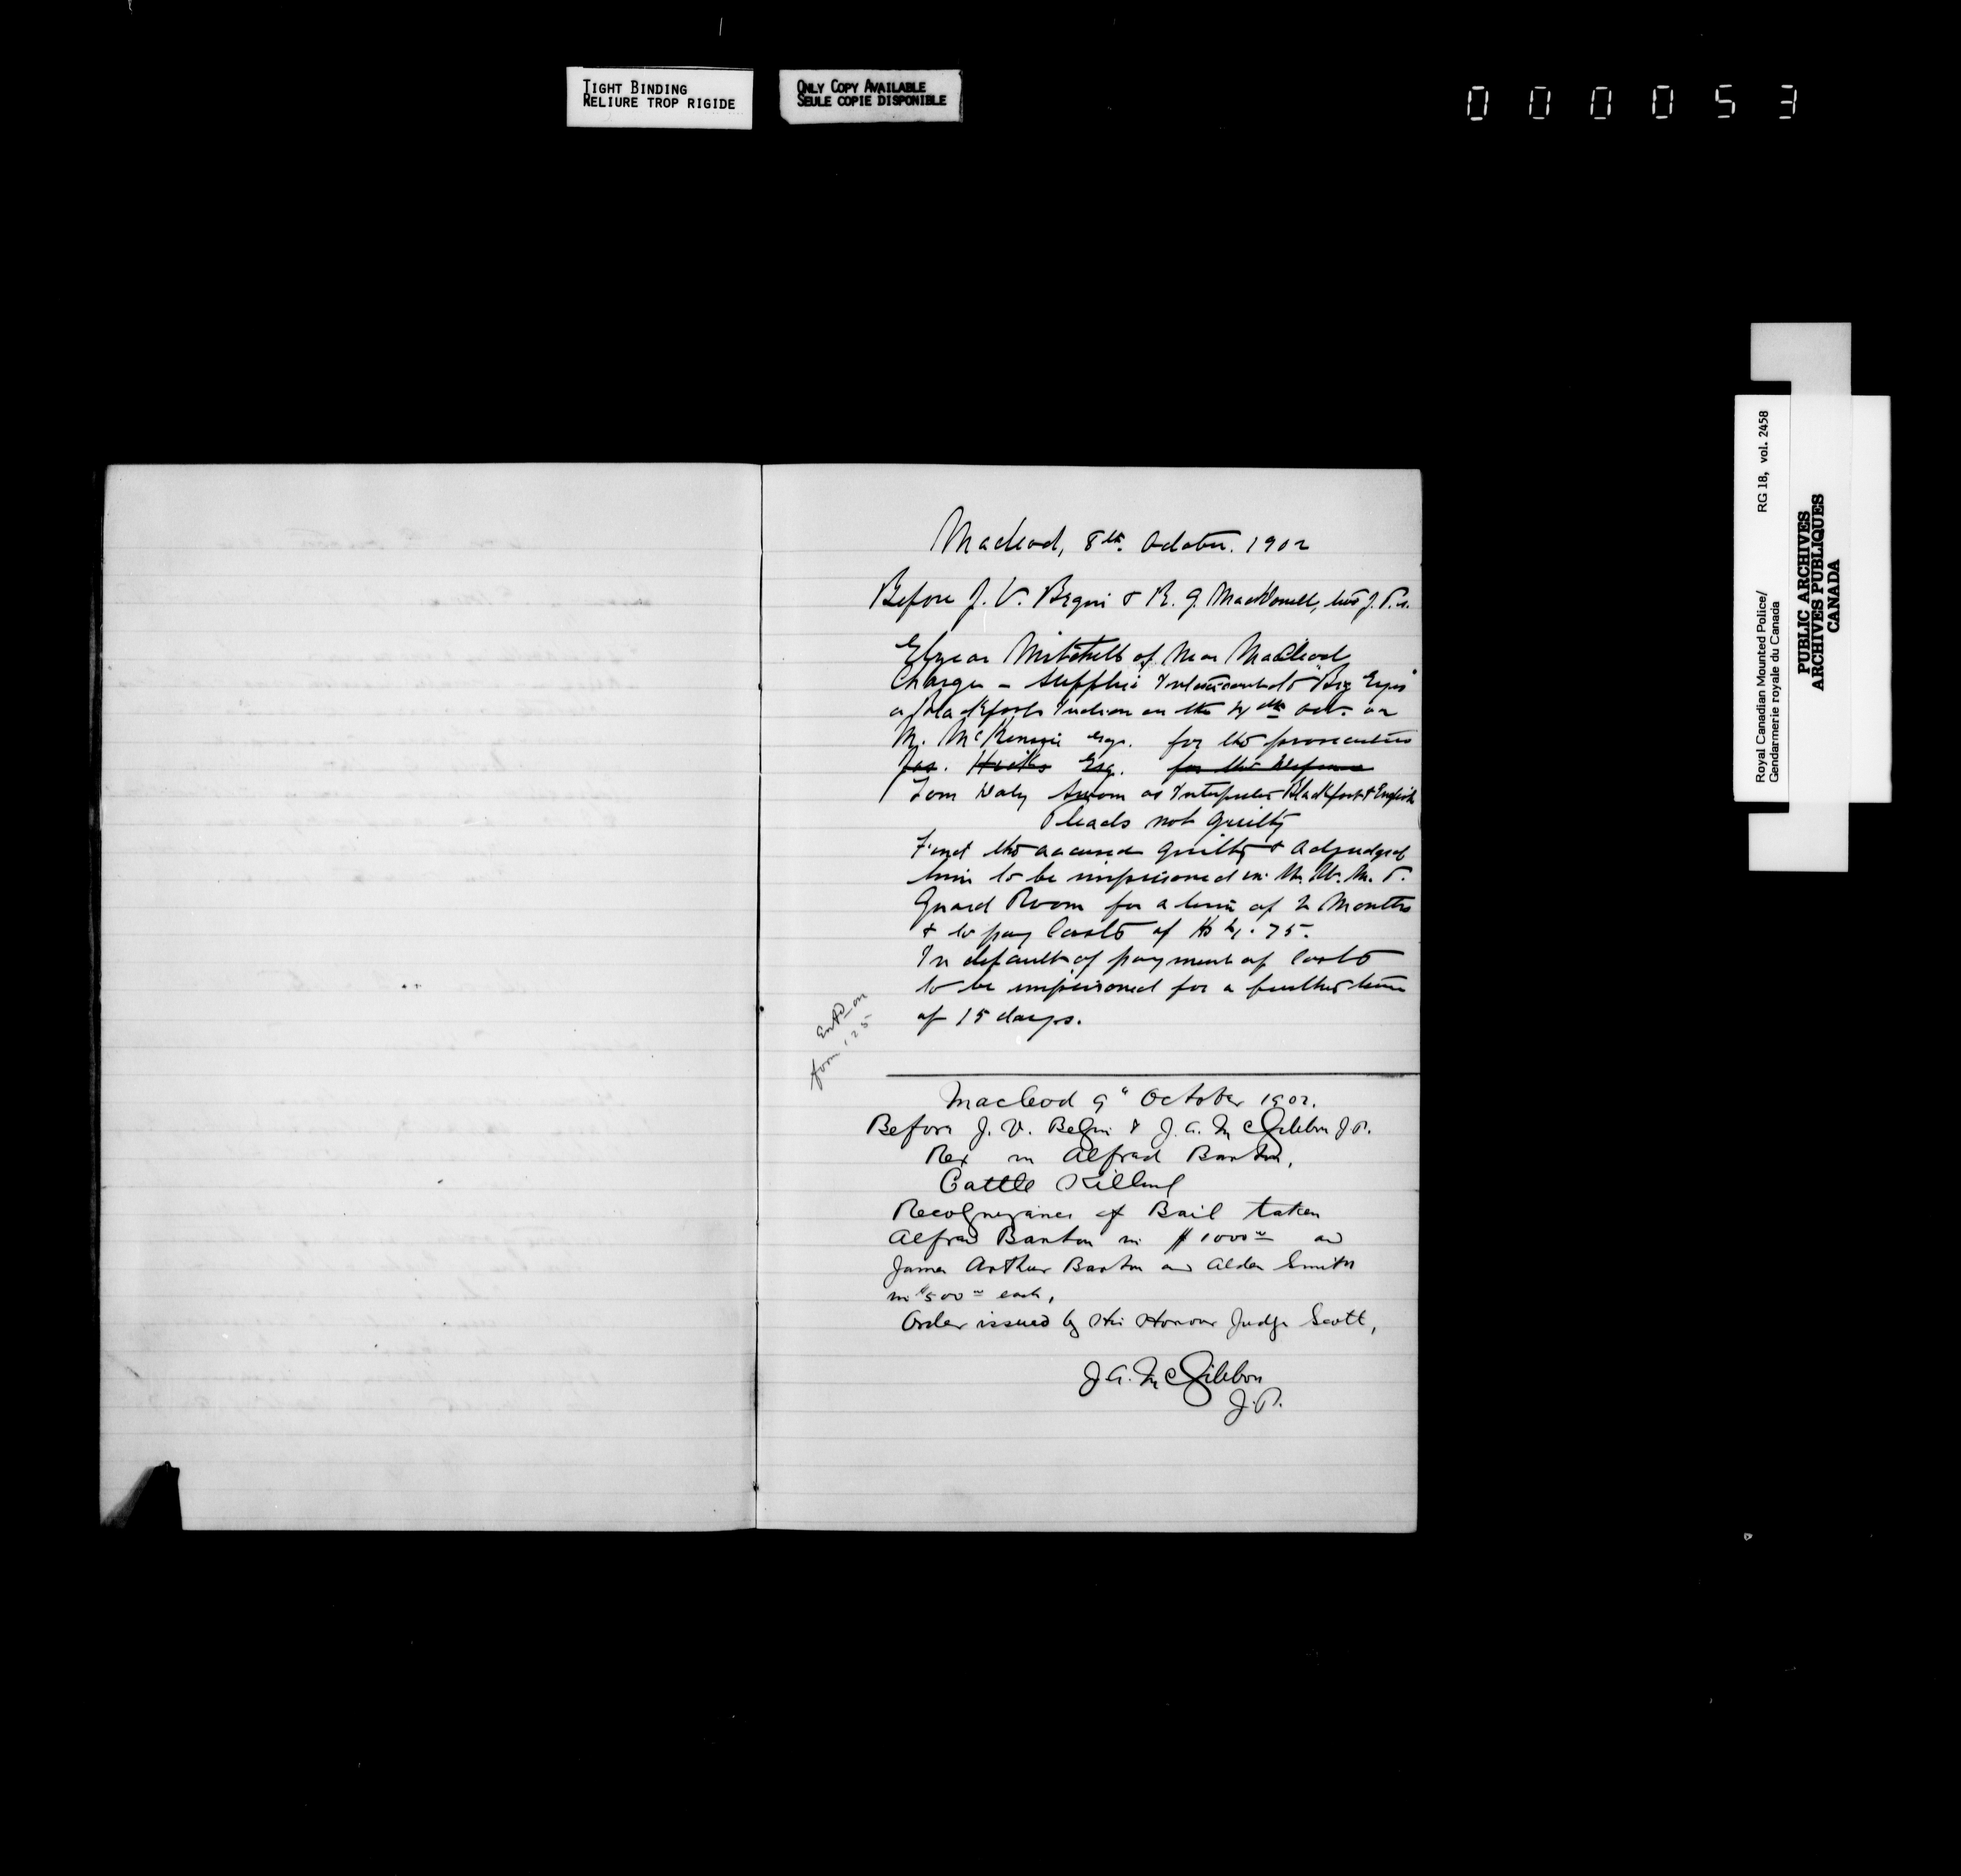 TIGHT BINDING
RELIURE TROP RIGIDE
ONLY COPY AVAILABLE
SEULE COPIE DISPONIBLE
000053
Macleod, 8th. October. 1902
Before J. V. Begin & R. G. MacDonell, two J.P.s.
Mitchell of Near Macleod
Charge - Supplie Intoxicants to "Big Eyes"
a Blackfoot Indian on the 4th Oct. 02
M. McKenzie Esq. for the prosecution
Jas. Hicks Esq. for the Defence
Tom Daly Sworn as Interpreter Blackfoot & English
Pleads not Guilty
Find the accused Guilty & adjudged
him to be imprisoned in N. W. M. P.
Guard Room for a term of 2 Months
& to pay Costs of .75.
In default of payment of Costs
to be imprisoned for a further term
of 15 days.
Entd on
form 125
Macleod 9" October 1902.
Before J. V. Begin & J. A. McGibbon J.P.
Rex Alfred Barton,
Cattle Killing
Recognizance of Bail taken
Alfred Barton in $1000 and
James Arthur Barton and Alden Smith
in $500 each,
Order issued by His Honour Judge Scott,
J A. McGibbon
J.P.
Royal Canadian Mounted Police/ RG 18, vol. 2458
Gendarmerie royale du Canada
PUBLIC ARCHIVES
ARCHIVES PUBLIQUES
CANADA